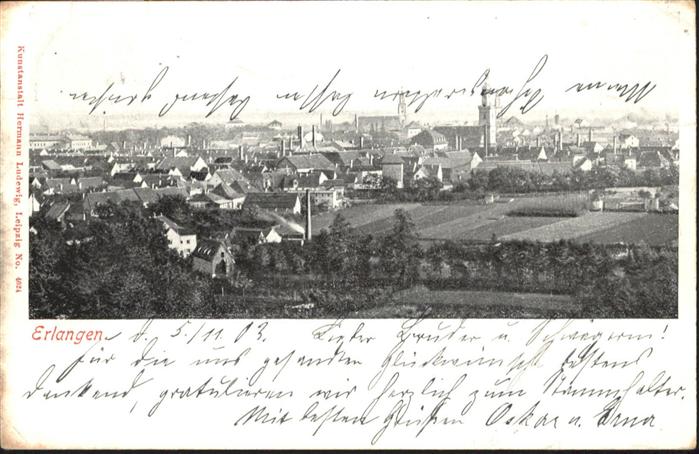 Kunstanstalt Hermann Ludewig, Leipzig No. 4024
Erlangen. d. 5/11. 03. Lieber Bruder u. Schwägerin!
Für die uns gesandten Glückwünsche bestens
dankend, gratulieren wir herzlich zum Stammhalter.
Mit besten Grüßen Oskar u. Erna